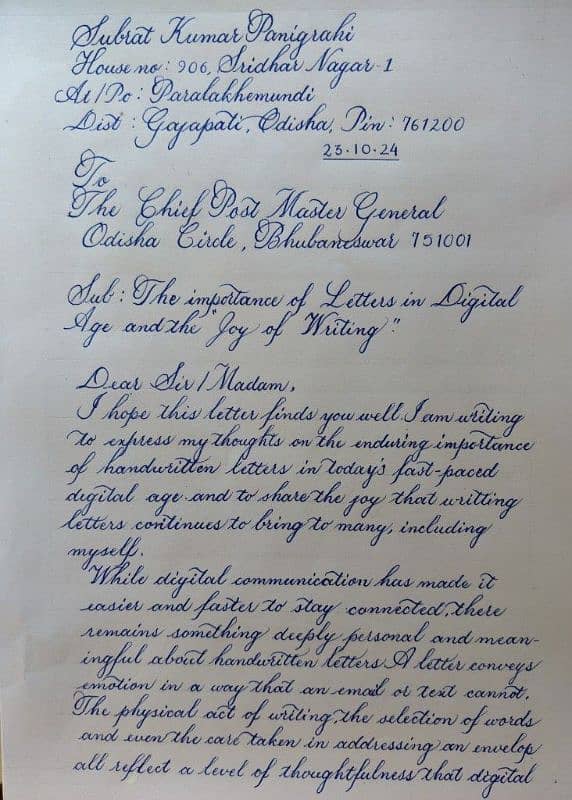 Subrat Kumar Panigrahi
House no: 906, Sridhar Nagar-1
At/Po: Paralakhemundi
Dist: Gajapati, Odisha, Pin: 761200
23.10.24
To
The Chief Post Master General
Odisha Circle, Bhubaneswar 751001
Sub: The importance of Letters in Digital
Age and the "Joy of Writing"
Dear Sir/Madam,
I hope this letter finds you well. I am writing
to express my thoughts on the enduring importance
of handwritten letters in today's fast-paced
digital age and to share the joy that writting
letters continues to bring to many, including
myself.
While digital communication has made it
easier and faster to stay connected, there
remains something deeply personal and mean-
ingful about handwritten letters. A letter conveys
emotion in a way that an email or text cannot.
The physical act of writing, the selection of words
and even the care taken in addressing an envelop
all reflect a level of thoughtfulness that digital